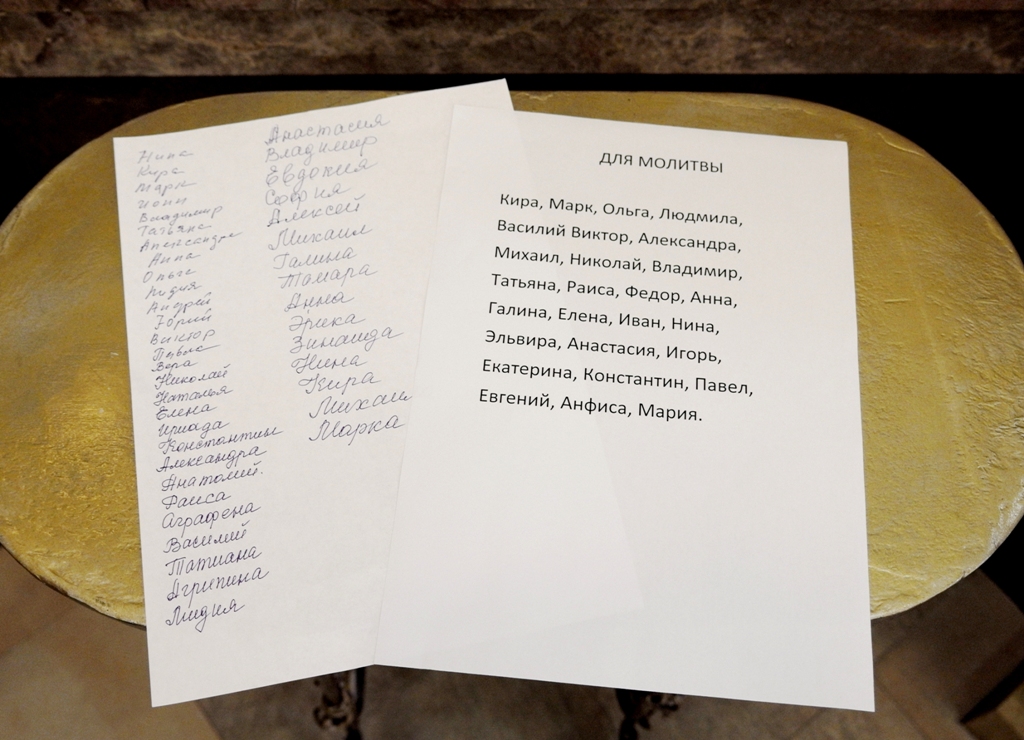 Нина
Кира
Марк
Иоии
Владимир
Татьяна
Александра
Анна
Ольга
Лидия
Андрей
Юрий
Виктор
Павла
Вера
Николай
Наталья
Елена
Ираида
Константин
Александра
Анатолий.
Раиса
Аграфена
Василий
Татиана
Агрипина
Лидия
Анастасия
Владимир
Евдокия
София
Алексей
Михаил
Галина
Тамара
Анна
Эрика
Зинаида
Нина
Кира
Михаил
Марка
ДЛЯ МОЛИТВЫ
Кира, Марк, Ольга, Людмила,
Василий Виктор, Александра,
Михаил, Николай, Владимир,
Татьяна, Раиса, Федор, Анна,
Галина, Елена, Иван, Нина,
Эльвира, Анастасия, Игорь,
Екатерина, Константин, Павел,
Евгений, Анфиса, Мария.